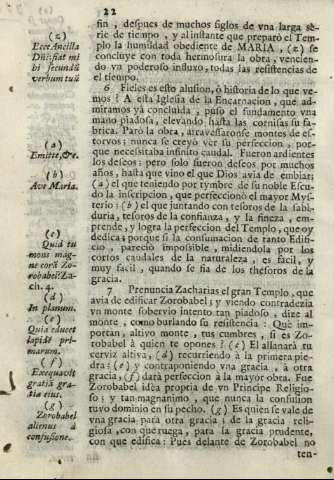 22
fin, despues de muchos siglos de vna larga sè-
rie de tiempo, y al instante que preparò el Tem-
plo la humildad obediente de MARIA, (z) se
concluye con toda hermosura la obra, vencien-
do vn poderoso influxo, todas las resistencias de
el tiempo.
6 Fieles es esto alusion, ò historia de lo que ve-
mos? A esta Iglesia de la Encarnacion, que ad-
miramos yà concluida, puso el fundamento vna
mano piadosa, elevando hasta las cornisas su fa-
brica. Parò la obra, atravessaronse montes de es-
torvos: nunca se creyò ver su perfeccion, por-
que necessitaba infinito caudal. Fueron ardientes
los deseos: pero solo fueron deseos por muchos
años, hasta que vino el que Dios avia de embiar;
(a) el que teniendo por tymbre de su noble Escu-
do la inscripcion, que perfeccionò el mayor Mys-
terio: (b) el que juntando con tesoros de la sabi-
duria, tesoros de la confianza, y la fineza, em-
prende, y logra la perfeccion del Templo, que oy
dedica: porque si la consumacion de tanto Edifi-
cio, pareciò impossible, midiendola por los
cortos caudales de la naturaleza, es facil, y
muy facil, quando se fia de los thesoros de la
gracia.
7 Prenuncia Zacharias el gran Templo, que
avia de edificar Zorobabel; y viendo contradezia
vn monte sobervio intento tan piadoso, dize al
monte, como burlando su resistencia: Què im-
portan, altivo monte, tus cumbres, si es Zo-
robabel à quien te opones? (c) El allanarà tu
cerviz altiva, (d) recurriendo à la primera pie-
dra: (e) y contraponiendo vna gracia, à otra
gracia, (f) darà perfeccion à la mayor obra. Fue
Zorobabel idea propria de vn Principe Religio-
so; y tan magnanimo, que nunca la confusion
tuvo dominio en su pecho. (g) Es quien se vale de
vna gracia para otra gracia; de la gracia reli-
giosa, con que ruega, para la gracia prudente,
con que edifica: Pues delante de Zorobabel no
ten-
(z)
Ecce Ancilla
Dñi: fiat mi
bi secundũ
verbum tuũ
(a)
Emitte, &c.
(b)
Ave Maria.
(c)
Quid tu
mons mag-
ne corã Zo-
robabel? Za-
ch. 4.
(d)
In planum.
(e)
Quia educet
lapidẽ pri-
marum.
(f)
Exequavit
gratiã gra-
tia eius.
(g)
Zorobabel
alienus à
confusione.